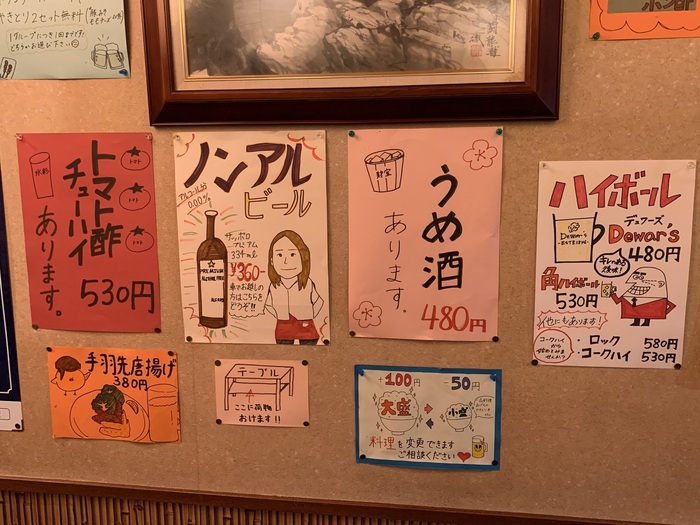 やきとり2セット無料
1グループにつき1回まで
どちらかお選び下さい
トマト酢
チューハイ
あります。
530円
トマト
トマト
トマト
ノンアル
ビール
アルコール分
0.00%
サッポロ
プレミアム
334ml
¥360-
車でお越しの
方はこちらを
どうぞ!!
PREMIUM
ALCOHOL FREE
うめ酒
あります。
480円
ハイボール
デュワーズ
Dewar's
480円
Dewar's
キレのある
炭酸!
角ハイボール
530円
他にもあります!
コークハイ
から
始めてみま
せんか?
・ロック 580円
・コークハイ 530円
手羽先唐揚げ
380円
テーブル
ここに荷物
おけます!!
+100円
-50円
大盛
小盛
料理を変更できます
ご相談ください